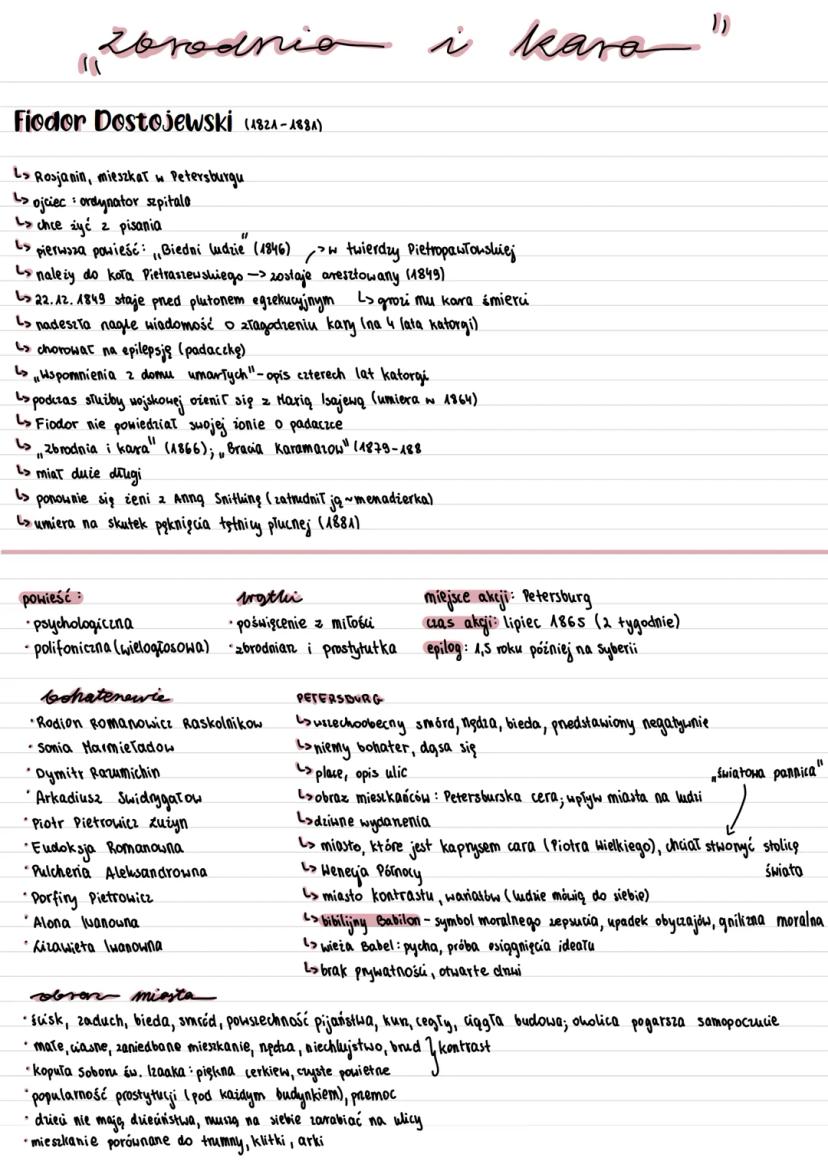 „zbrodnia i kara"
Fiodor Dostojewski (1821-1881)
↳ Rosjanin, mieszkał w Petersburgu
↳ ojciec : ordynator szpitala
↳ chce żyć z pisania
↳ pierwsza powieść: „Biedni ludzie" (1846) → w twierdzy Pietropawłowskiej
↳ należy do koła Pietraszewskiego → zostaje aresztowany (1849)
↳ 22.12.1849 staje przed plutonem egzekucyjnym ↳ grozi mu kara śmierci
↳ nadeszła nagle wiadomość o złagodzeniu kary (na 4 lata katorgi)
↳ chorował na epilepsję (padaczkę)
↳ „Wspomnienia z domu umarłych" - opis czterech lat katorgi
↳ podczas służby wojskowej ożenił się z Marią Isajewą (umiera w 1864)
↳ Fiodor nie powiedział swojej żonie o padaczce
↳ „zbrodnia i kara" (1866); „Bracia Karamazow" (1879-188
↳ miał duże długi
↳ ponownie się żeni z Anną Snitkiną (zatrudnił ją ~ menadżerka)
↳ umiera na skutek pęknięcia tętnicy płucnej (1881)
powieść :
· psychologiczna
· polifoniczna (wielogłosowa)
wątki
· poświęcenie z miłości
· zbrodniarz i prostytutka
miejsce akcji: Petersburg
czas akcji: lipiec 1865 (2 tygodnie)
epilog: 1,5 roku później na Syberii
bohaterowie
· Rodion Romanowicz Raskolnikow
· Sonia Marmieładow
· Dymitr Razumichin
· Arkadiusz Swidrygajłow
· Piotr Pietrowicz Łużyn
· Eudoksja Romanowna
· Pulcheria Aleksandrowna
· Porfiry Pietrowicz
· Alona Iwanowna
· Lizawieta Iwanowna
PETERSBURG
↳ wszechobecny smród, nędza, bieda, przedstawiony negatywnie
↳ niemy bohater, dąsa się
↳ place, opis ulic
↳ obraz mieszkańców : Petersburska cera; wpływ miasta na ludzi
↳ dziwne wydarzenia
↳ miasto, które jest kaprysem cara (Piotra Wielkiego), chciał stworzyć stolicę świata
„światowa pannica"
↳ Wenecja Północy
↳ miasto kontrastu, wariatów (ludzie mówią do siebie)
↳ bibilijny Babilon - symbol moralnego zepsucia, upadek obyczajów, gnilizna moralna
↳ wieża Babel : pycha, próba osiągnięcia ideału
↳ brak prywatności, otwarte drzwi
obraz miasta
· ścisk, zaduch, bieda, smród, powszechność pijaństwa, kurz, cegły, ciągła budowa; okolica pogarsza samopoczucie
· małe, ciasne, zaniedbane mieszkanie, nędza, niechlujstwo, brud } kontrast
· kopuła Soboru św. Izaaka : piękna cerkiew, czyste powietrze
· popularność prostytucji (pod każdym budynkiem), przemoc
· dzieci nie mają dzieciństwa, muszą na siebie zarabiać na ulicy
· mieszkanie porównane do trumny, klitki, arki